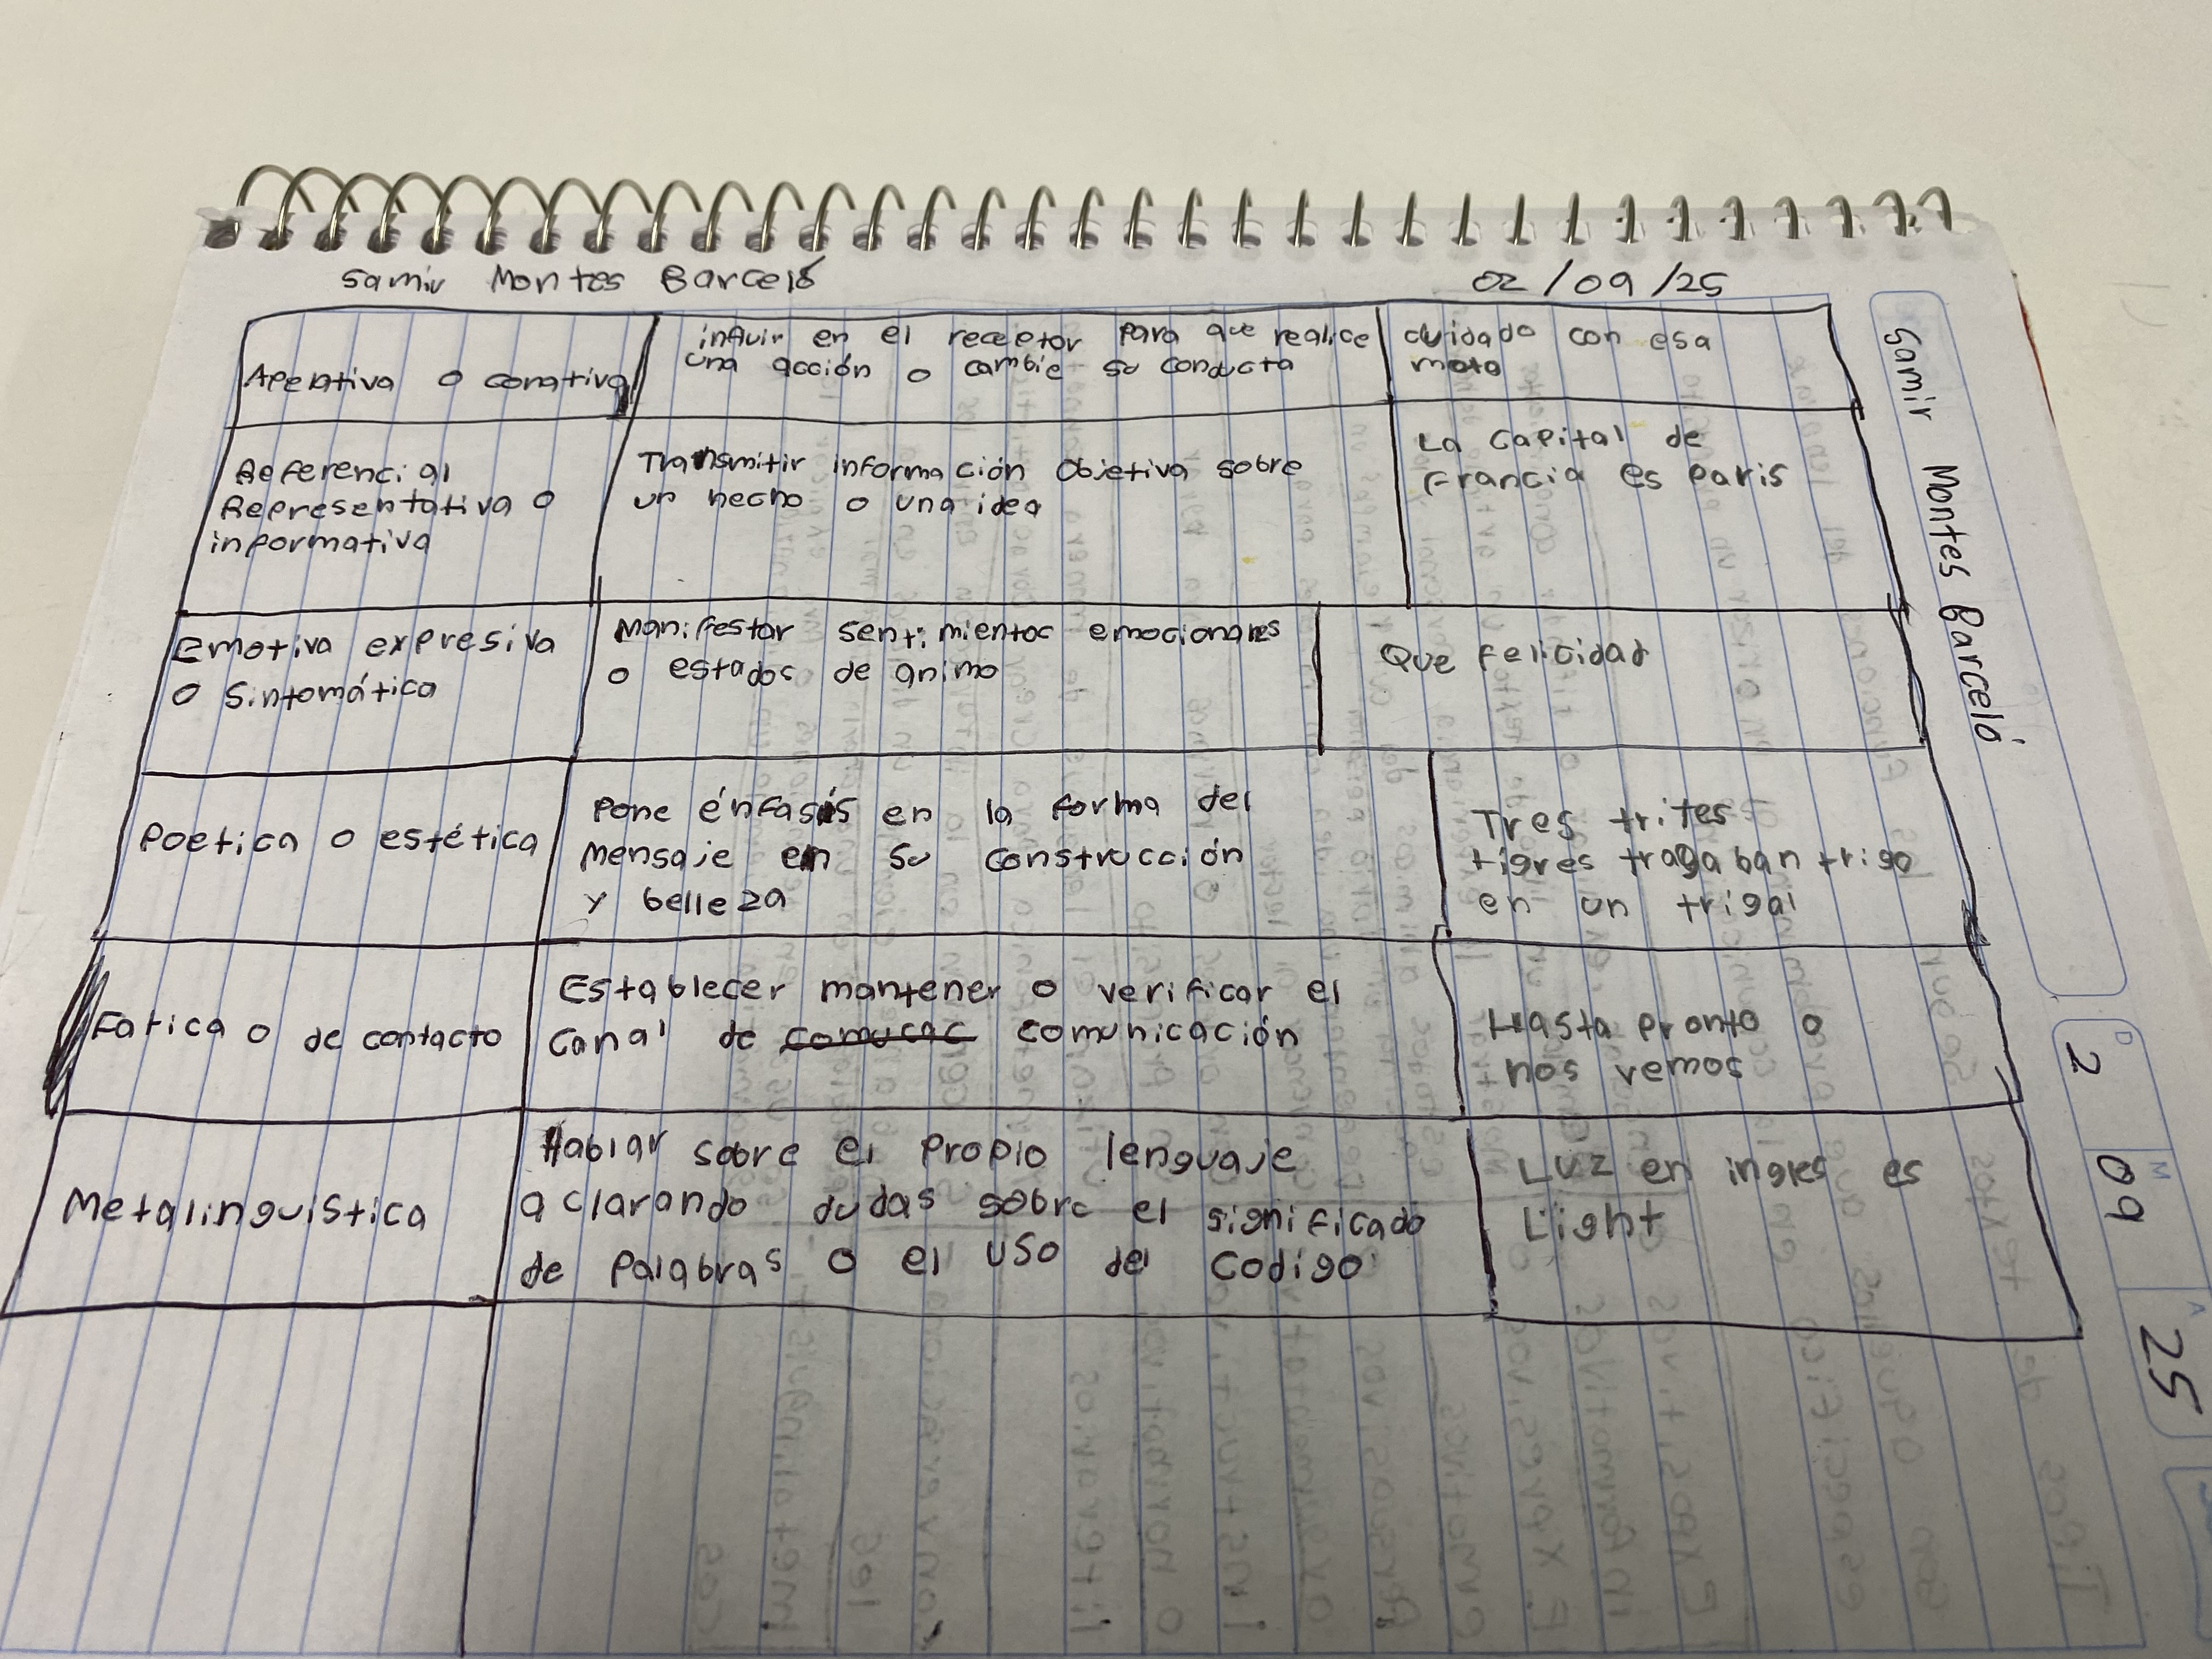 Samir Montes Barceló
02/09/25
Apelativa o conativa
influir en el receptor para que realice
una acción o cambie su conducta
cuidado con esa
moto
Referencial
Representativa o
informativa
Transmitir información Objetiva sobre
un hecho o una idea
La capital de
Francia es paris
Emotiva expresiva
o sintomática
Manifestar sentimientos emocionales
o estados de animo
Que felicidad
Poetica o estética
Pone énfasis en la forma del
mensaje en su construcción
y belleza
Tres trites
tigres tragaban trigo
en un trigal
Fatica o de contacto
Establecer mantener o verificar el
canal de comucac comunicación
Hasta pronto o
nos vemos
Metalinguística
Hablar sobre el propio lenguaje
aclarando dudas sobre el significado
de palabras o el uso del codigo
Luz en ingles es
Light
Samir Montes Barceló
D
2
M
09
A
25